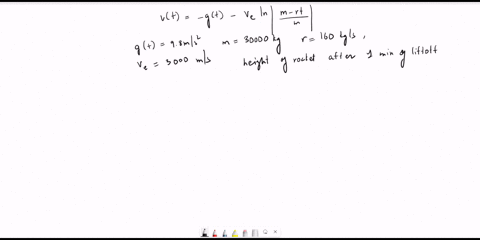 v(t) = -g(t) - ve ln |m-rt/m|
g(t) = 9.8 m/s² m = 30000 kg r = 160 kg/s,
ve = 3000 m/s height of rocket after 1 min of liftoff